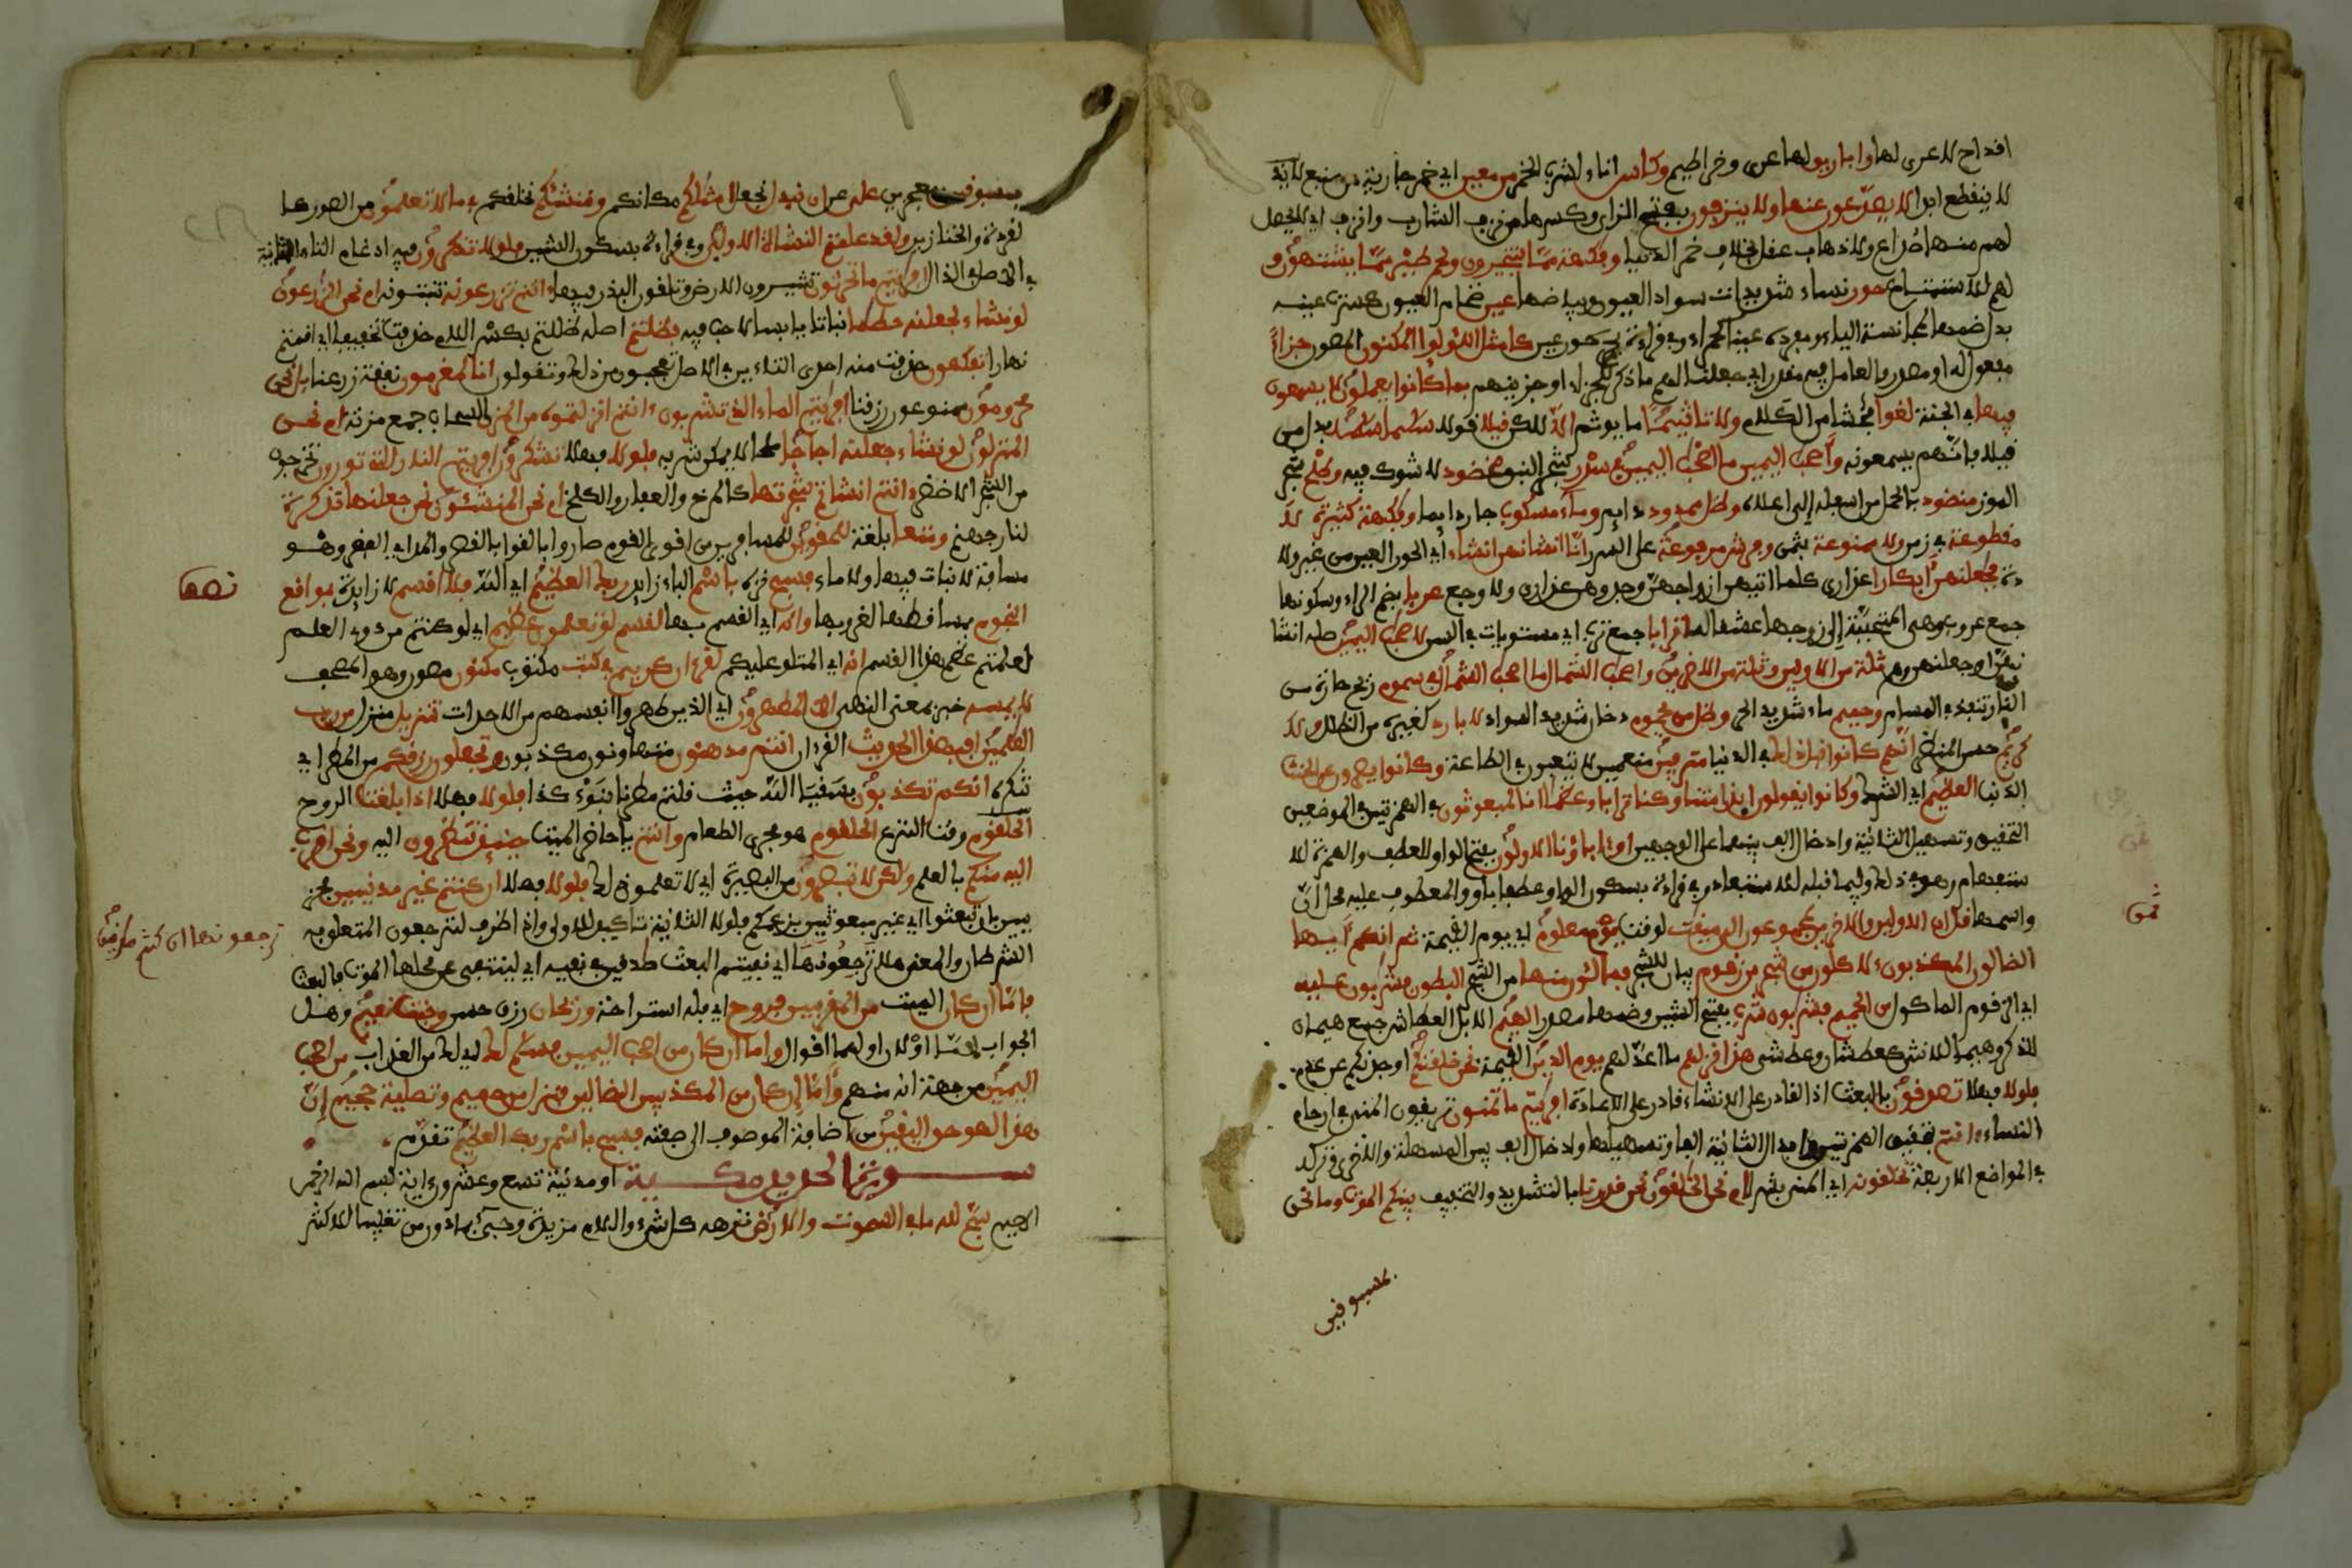 اقداح لا عرى لها واباريق لها عرى وخراطيم وكاس اناء لشرب الخمر من معين اي خمر جارية من منبع لا
لا ينقطع ابدا لا يصدعون عنها ولا ينزفون بفتح الزاى وكسرها من نزف الشارب وانزف اي لا يحصل
لهم منها صداع ولا ذهاب عقل بخلاف خمر الدنيا وفكهة مما يتخيرون ولحم طير مما يشتهون و
لهم للاستمتاع حور نساء شديدات سواد العيون وبياضها عين ضخام العيون كسرت عينه
بدل ضمها لمجانسة الياء ومفرده عيناء كحمراء وفي قراءة بجر حور عين كامثل اللؤلوا المكنون المصون جزاء
مفعول له او مصدر والعامل فيه مقدر اي جعلنا لهم ما ذكر للجزاء او جزينهم بما كانوا يعملون لا يسمعون
فيها في الجنة لغوا فحشا من الكلام ولا تاثيما ما يوثم الا لاكن قيلا قولا سلما سلما بدل من
قيلا فانهم يسمعونه واصحب اليمين ما اصحب اليمين في سدر شجر النبق مخضود لا شوك فيه وطلح شجر
الموز منضود بالحمل من اسفله الى اعلاه وظل ممدود دايم وماء مسكوب جار دايما وفكهة كثيرة لا
مقطوعة في زمن ولا ممنوعة بثمن وفرش مرفوعة على السرر انا انشانهن انشاء اي الحور العين من غير ولا
دة فجعلنهن ابكارا عذارى كلما اتيهن ازواجهن وجدوهن عذارى ولا وجع عربا بضم الراء وسكونها
جمع عروب وهي المتحببة الى زوجها عشقا له اترابا جمع ترب اي مستويات في السن لاصحب اليمين صلة انشا
نهن او جعلنهن وهم ثلة من الاولين وثلة من الاخرين واصحب الشمال ما اصحب الشمال في سموم ريح حارة من
النار تنفذ في المسام وحميم ماء شديد الحر وظل من يحموم دخان شديد السواد لا بارد كغيره من الظلال ولا
كريم حسن المنظر انهم كانوا قبل ذلك في الدنيا مترفين منعمين لا يتعبون في الطاعة وكانوا يصرون على الحنث
الذنب العظيم اي الشرك وكانوا يقولون ايذا متنا وكنا ترابا وعظما انا لمبعوثون في الهمزتين في الموضعين
التحقيق وتسهيل الثانية وادخال الف بينهما على الوجهين او اباؤنا الاولون بفتح الواو للعطف والهمزة للا
ستفهام وهو في ذلك وفيما قبله للاستبعاد وفي قراءة بسكون الواو عطفا باو والمعطوف عليه محل ان
واسمها قل ان الاولين والاخرين لمجموعون الى ميقت لوقت يوم معلوم اي يوم القيمة ثم انكم ايها
الضالون المكذبون لاكلون من شجر من زقوم بيان للشجر فمالئون منها من الشجر البطون فشربون عليه
اي الزقوم الماكول من الحميم فشربون شرب بفتح الشين وضمها مصدر الهيم الابل العطاش جمع هيمان
للذكر وهيما للانثى كعطشان وعطشى هذا نزلهم ما اعد لهم يوم الدين القيمة نحن خلقنكم اوجدنكم عن عدم
فلولا فهلا تصدقون بالبعث اذ القادر على الانشاء قادر على الاعادة افريتم ما تمنون تريقون المني في ارحام
النساء ءانتم بتحقيق الهمزتين وابدال الثانية الفا وتسهيلها وادخال الف بين المسهلة والاخرى وتركه
في المواضع الاربعة تخلقونه اي المني بشرا ام نحن الخلقون نحن قدرنا بالتشديد والتخفيف بينكم الموت وما نحن
بمسبوقين
ثمن
بمسبوقين عجزين على عن ان نبدل نجعل امثلكم مكانكم وننشئكم نخلقكم في ما لا تعلمون من الصور كا
لقردة والخنازير ولقد علمتم النشاة الاولى وفي قراءة بسكون الشين فلولا تذكرون فيه ادغام التاء الثانية
في الاصل في الذال افريتم ما تحرثون تثيرون الارض وتلقون البذر فيها ءانتم تزرعونه تنبتونه ام نحن الزرعون
لو نشاء لجعلنه حطما نباتا يابسا لا حب فيه فظلتم اصله ظللتم بكسر اللام حذفت تخفيفا اي اقمتم
نهارا تفكهون حذفت منه احدى التاءين في الاصل تعجبون من ذلك وتقولون انا لمغرمون نفقة زرعنا بل نحن
محرومون ممنوعون رزقنا افريتم الماء الذي تشربون ءانتم انزلتموه من المزن السحاب جمع مزنة ام نحن
المنزلون لو نشاء جعلنه اجاجا ملحا لا يمكن شربه فلولا فهلا تشكرون افريتم النار التي تورون تخرجون
من الشجر الاخضر ءانتم انشاتم شجرتها كالمرخ والعفار والكلخ ام نحن المنشئون نحن جعلنها تذكرة
لنار جهنم ومتعا بلغة للمقوين للمسافرين من اقوى القوم صاروا بالقوا بالقصر والمد اي القفر وهو
مفازة لا نبات فيها ولا ماء فسبح نزه باسم الباء زايد ربك العظيم اي الله فلا اقسم لا زايدة بموقع
النجوم بمساقطها لغروبها وانه اي القسم بها لقسم لو تعلمون عظيم اي لو كنتم من ذوي العلم
لعلمتم عظم هذا القسم انه اي المتلو عليكم لقران كريم في كتب مكتوب مكنون مصون وهو المصحف
لا يمسه خبر بمعنى النهي الا المطهرون اي الذين طهروا انفسهم من الاحداث تنزيل منزل من رب
العلمين افبهذا الحديث القران انتم مدهنون متهاونون مكذبون وتجعلون رزقكم من المطر اي
شكره انكم تكذبون بسقيا الله حيث قلتم مطرنا بنوء كذا فلولا فهلا اذا بلغت الروح
الحلقوم وقت النزع الحلقوم هو مجرى الطعام وانتم يا حاضري الميت حينئذ تنظرون اليه ونحن اقرب
اليه منكم بالعلم ولكن لا تبصرون من البصيرة اي لا تعلمون ذلك فلولا فهلا ان كنتم غير مدينين مجز
يين بان تبعثوا اي غير مبعوثين بزعمكم فلولا الثانية تاكيد للاولى واذا ظرف لترجعون المتعلق به
الشرطان والمعنى هلا ترجعونها اي نفيتم البعث صدقين في نفيه اي لينتفي عن محلها الموت كالبعث
فاما ان كان الميت من المقربين فروح اي فله استراحة وريحان رزق حسن وجنت نعيم وهل
الجواب لاما او لان او لهما اقوال واما ان كان من اصحب اليمين فسلم لك اي له من العذاب من اصحب
اليمين من جهة انه منهم واما ان كان من المكذبين الضالين فنزل من حميم وتصلية جحيم ان
هذا لهو حق اليقين من اضافة الموصوف الى صفته فسبح باسم ربك العظيم تقدم
سورة الحديد مكية او مدنية تسع وعشرون اية بسم الله الرحمن
الرحيم سبح لله ما في السموت والارض نزهه كل شيء واللام مزيدة وجيء بما دون من تغليبا للاكثر
نصف
ترجعونها ان كنتم صدقين